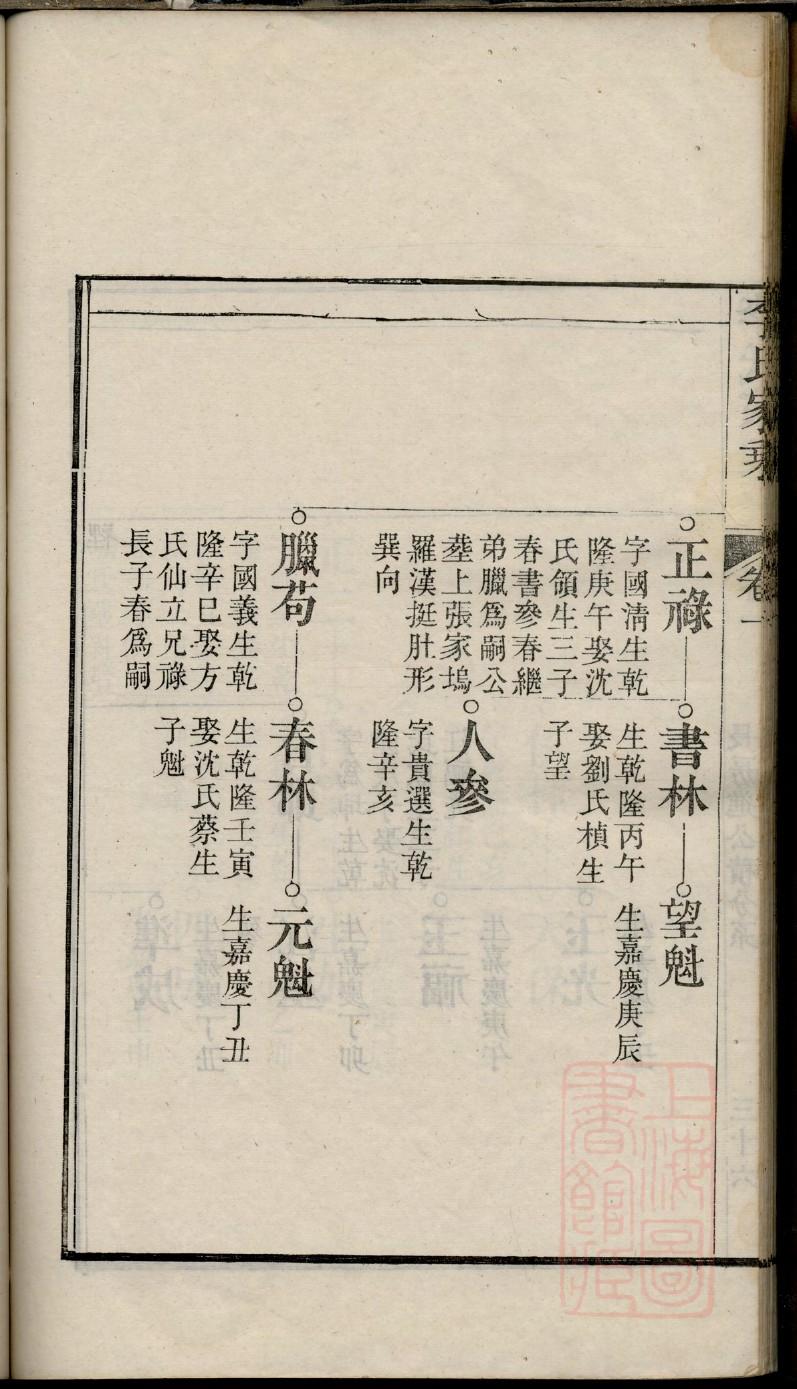 李氏家乘
卷一
正祿
字國清生乾
隆庚午娶沈
氏領生三子
春書參春繼
弟臘爲嗣公
塟上張家塢
羅漢挺肚形
巽向
書林
生乾隆丙午
娶劉氏楨生
子望
望魁
生嘉慶庚辰
人參
字貴選生乾
隆辛亥
臘苟
字國義生乾
隆辛巳娶方
氏仙立兄祿
長子春爲嗣
春林
生乾隆壬寅
娶沈氏蔡生
子魁
元魁
生嘉慶丁丑
上海圖
書館藏